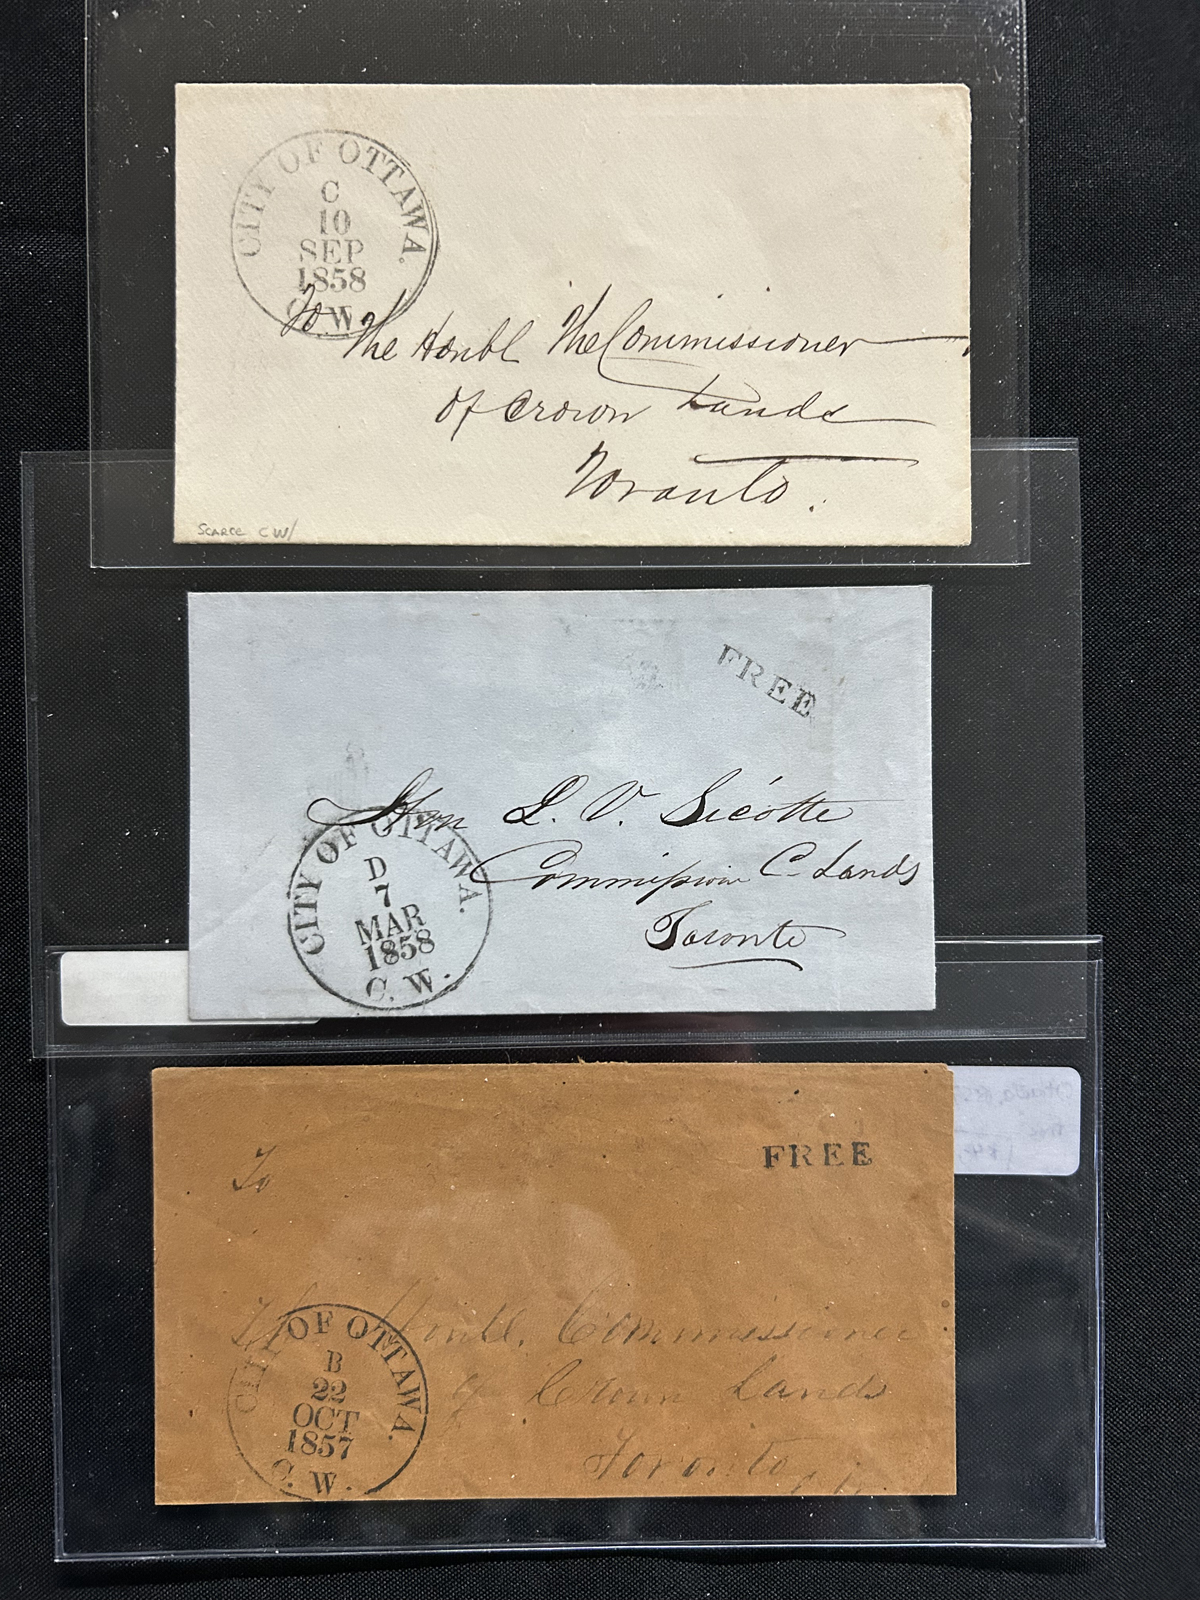 CITY OF OTTAWA.
C
10
SEP
1858
C. W.
To
The Honbl The Commissioner
of Crown Lands
Toronto.
Scarce CW/
FREE
Hon L. V. Sicotte
Commissioner C. Lands
Toronto
CITY OF OTTAWA.
D
7
MAR
1858
C. W.
FREE
To
The Honbl. Commissioner
of Crown Lands
Toronto
CITY OF OTTAWA.
B
22
OCT
1857
C. W.